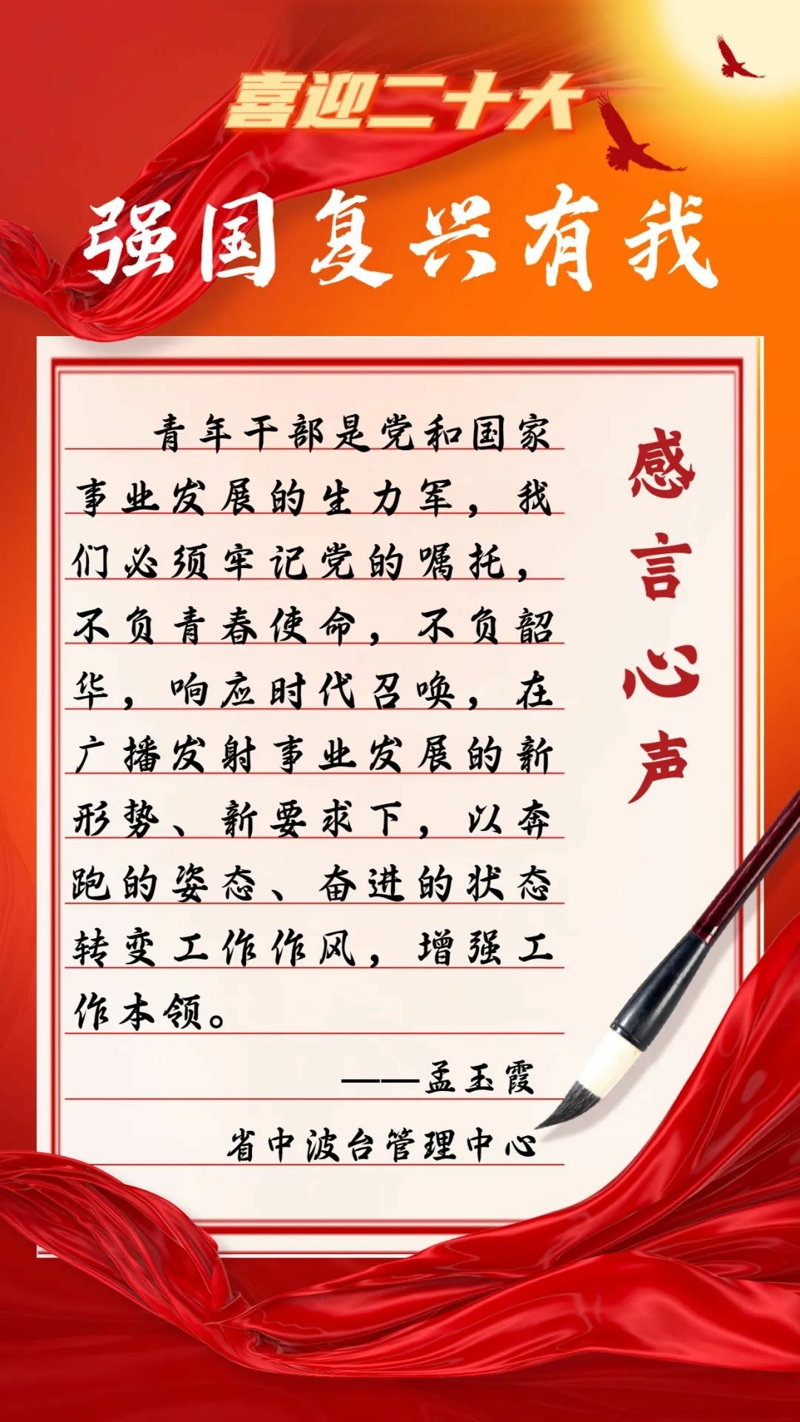 喜迎二十大
强国复兴有我
感言心声
青年干部是党和国家
事业发展的生力军，我
们必须牢记党的嘱托，
不负青春使命，不负韶
华，响应时代召唤，在
广播发射事业发展的新
形势、新要求下，以奔
跑的姿态、奋进的状态
转变工作作风，增强工
作本领。
——孟玉霞
省中波台管理中心